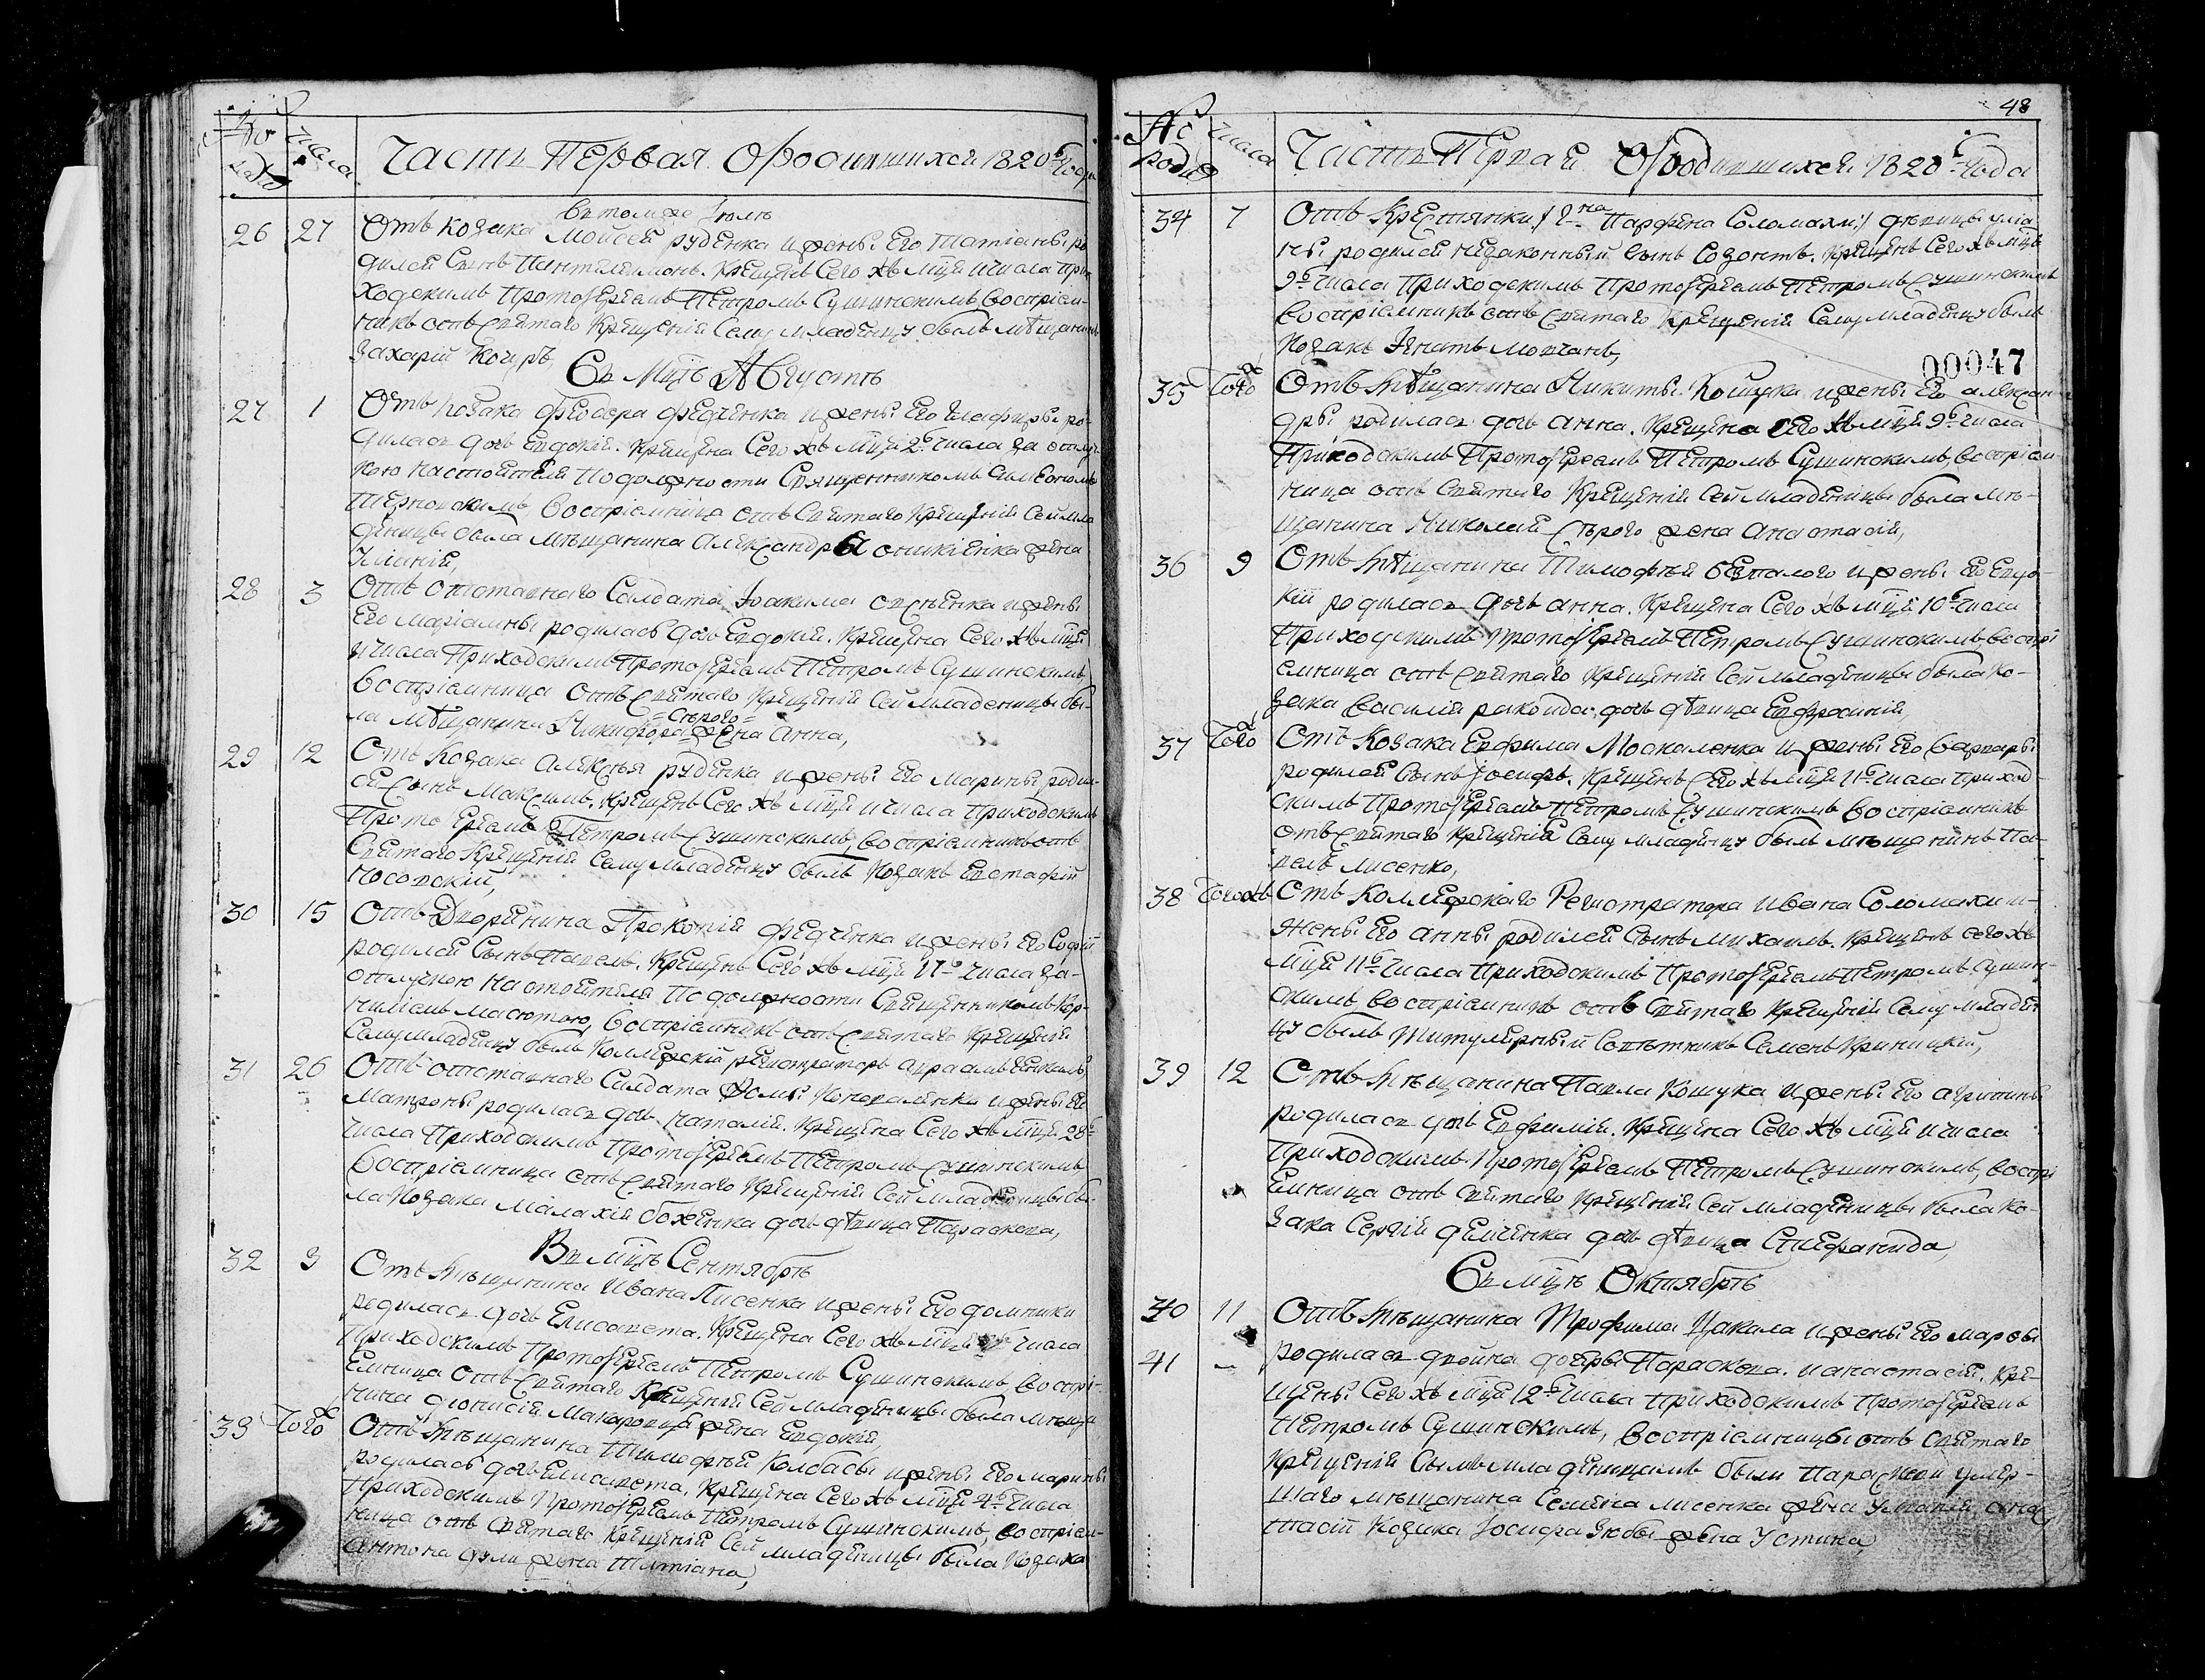 Часть Первая Ородившихся 1820го Года
Втомже Іюлѣ
26 27 Отъ козака Моисея руденка ижены Его Татіаны ро-
дился Сынъ Пантелимонъ. Крещенъ Сего жъ мця ичисла При-
ходскимъ ПротоІереемъ Петромъ Сушинскимъ, воспріем-
никъ отъ Святаго Крещенія Сему младенцу былъ мѣщанинъ
Захарій Коцръ,
Въ Мцѣ Августѣ
27 1 Отъ козака Феодора федченка ижены Его Гликиры ро-
дилась дочь Евдокія. Крещена Сего жъ мця 2го числа за отлуч-
кою настоятеля Подолжности Священникомъ Симеономъ
Терновскимъ, воспріемница отъ Святаго Крещенія Сей мла-
деницы была мѣщанина Александра оникіенка жена
Уліанія,
28 3 Отъ отставнаго Солдата Іоакима ижены
Его маріамны родилась дочь Евдокія. Крещена Сего жъ мця
ичисла Приходскимъ ПротоІереемъ Петромъ Сушинскимъ
Воспріемница отъ Святаго Крещенія Сей младеницы бы-
ла мѣщанина Никифора Сѣрого жена Анна,
29 12 Отъ Козака Алексѣя руденка ижены Его марины родил-
ся Сынъ Максимъ. Крещенъ Сего жъ мця ичисла Приходскимъ
Прото Ереемъ Петромъ Сушинскимъ, воспріемникъ отъ
Святаго Крещенія Сему младенцу былъ козакъ Евстафій
Носовскій,
30 15 Отъ Дворянина Прокопія федченка ижены Его Софіи
родился Сынъ Павелъ. Крещенъ Сего жъ мця 17го числа за-
отлучкою настоятеля Подолжности Священникомъ Кор-
ниліемъ масютою, воспріемникъ отъ Святаго Крещенія
Сему младенцу былъ Коллежскій регистраторъ
31 26 Отъ отставнаго Солдата Фомы Коноваленка ижены Его
Матроны родилась дочь Наталія. Крещена Сего жъ мця 28го
числа Приходскимъ ПротоІереемъ Петромъ Сушинскимъ
воспріемница отъ Святаго Крещенія Сей младеницы бы-
ла козака малахія боженка дочь дѣвица Параскева,
Въ мцѣ Сентябрѣ
32 3 Отъ мѣщанина Ивана Лисенка ижены Его домники
родилась дочь Елисавета. Крещена Сего жъ мця числа
Приходскимъ ПротоІереемъ Петромъ Сушинскимъ воспрі-
емница отъ Святаго Крещенія Сей младеницы была мѣща-
нина діонисія Макаровца жена Евдокія,
33 Того Отъ мѣщанина Тимофея Колбасы ижены Его марины
родилась дочь Елисавета, Крещена Сего жъ мця 4го числа
Приходскимъ ПротоІереемъ Петромъ Сушинскимъ, воспріем-
ница отъ Святаго Крещенія Сей младеницы была козака
Антона дули жена Татіана,
48
Часть Первая Ородившихся 1820го Года
34 7 Отъ Крестянки Парфена Соломахи дѣвицы ула-
ны родился незаконный сынъ Созонтъ. Крещенъ Сего жъ мця
9го числа Приходскимъ ПротоІереемъ Петромъ Сушинскимъ
воспріемникъ отъ Святаго Крещенія Сему младенцу былъ
козакъ Игнатъ мовчанъ,
00047
35 Того Отъ мѣщанина Никиты Коцука ижены Его александ-
дры родилась дочь Анна. Крещена Сего жъ мця 9го числа
Приходскимъ ПротоІереемъ Петромъ Сушинскимъ, воспріем-
ница отъ Святаго Крещенія Сей младеницы была мѣ-
щанина Николая Сѣрого жена Анастасія,
36 9 Отъ мѣщанина Тимофея безпалого ижены Его Евдо-
кіи родилась дочь анна. Крещена Сего жъ мця 10го числа
Приходскимъ ПротоІереемъ Петромъ Сушинскимъ, воспрі-
емница отъ Святаго Крещенія Сей младеницы была ко-
зака василія дочь дѣвица Евфросинія,
37 Того Отъ Козака Евфима Москаленка ижены Его варвары
родился Сынъ Іосифъ. Крещенъ Сего жъ мця 11го числа приход-
скимъ ПротоІереемъ Петромъ Сушинскимъ воспріемникъ
отъ Святаго Крещенія Сему младенцу былъ мѣщанинъ Па-
велъ лисенко,
38 Тогожъ Отъ Коллежскаго Регистратора Ивана Соломахи и-
жены Его анны родился Сынъ михаилъ. Крещенъ сего жъ
мця 11го числа Приходскимъ ПротоІереемъ Петромъ Сушин-
скимъ воспріемникъ отъ Святаго Крещенія Сему младен-
цу былъ Титулярный Совѣтникъ Семенъ Криницкій,
39 12 Отъ мѣщанина Павла Кошука ижены Его агрипины
родилась дочь Евфимія. Крещена Сего жъ мця ичисла
Приходскимъ ПротоІереемъ Петромъ Сушинскимъ, воспрі-
емница отъ Святаго Крещенія Сей младеницы была ко-
зака Сергія демченка дочь дѣвица Стефанида,
Въ мцѣ Октябрѣ
40 11 Отъ мѣщанина Трофима Цакала ижены Его марфы
41 родилась двойна дочеры Параскева. и анастасія. Кре-
щены Сего жъ мця 12го числа Приходскимъ ПротоІереемъ
Петромъ Сушинскимъ, воспріемницы отъ Святаго
Крещенія Симъ младеницамъ были Параскеви умер-
шаго мѣщанина Семена лисенка жена а Анас-
тасіи Козака Іосифа Зюбы жена Устина,